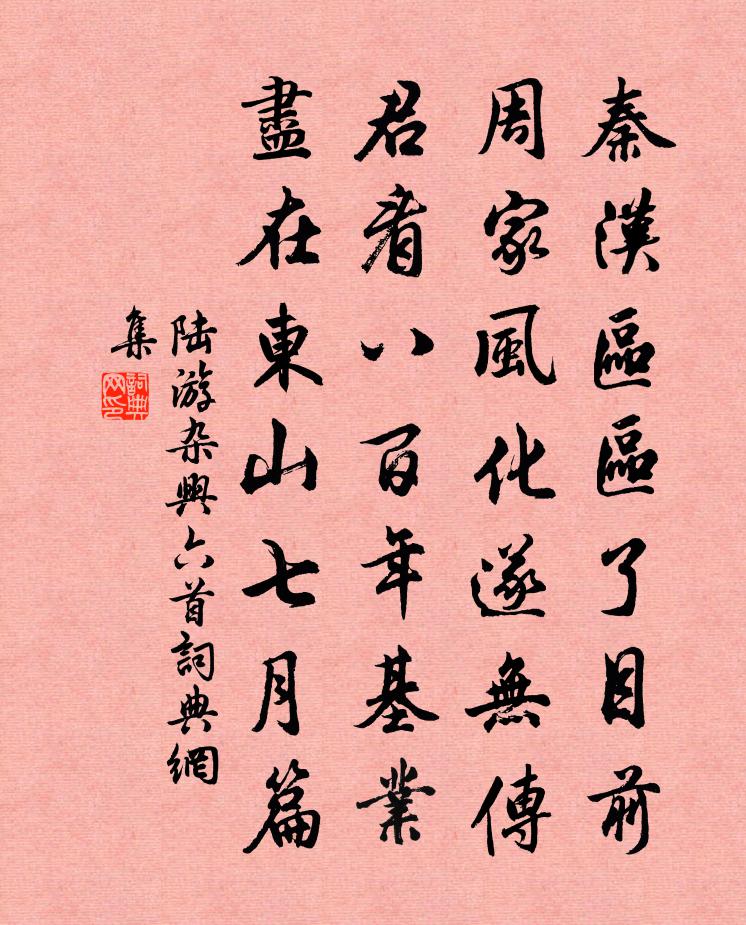 秦漢區區了目前
周家風化遂無傳
君看八百年基業
盡在東山七月篇
陸游杂興六首詞典網
集
詞典網印